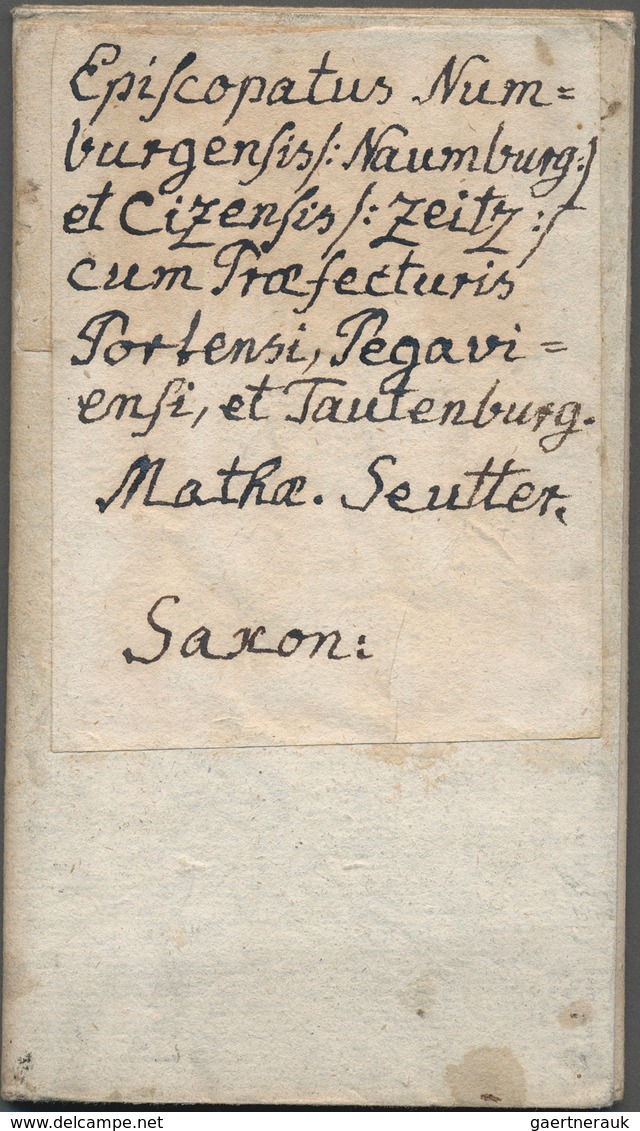 Episcopatus Num=
burgensis /: Naumburg :/
et Cizensis /: Zeitz :/
cum Præfecturis
Portensi, Pegavi=
ensi, et Tautenburg.
Mathæ. Seutter.
Saxon:
DELCAMPE.NET
gaertnerauk